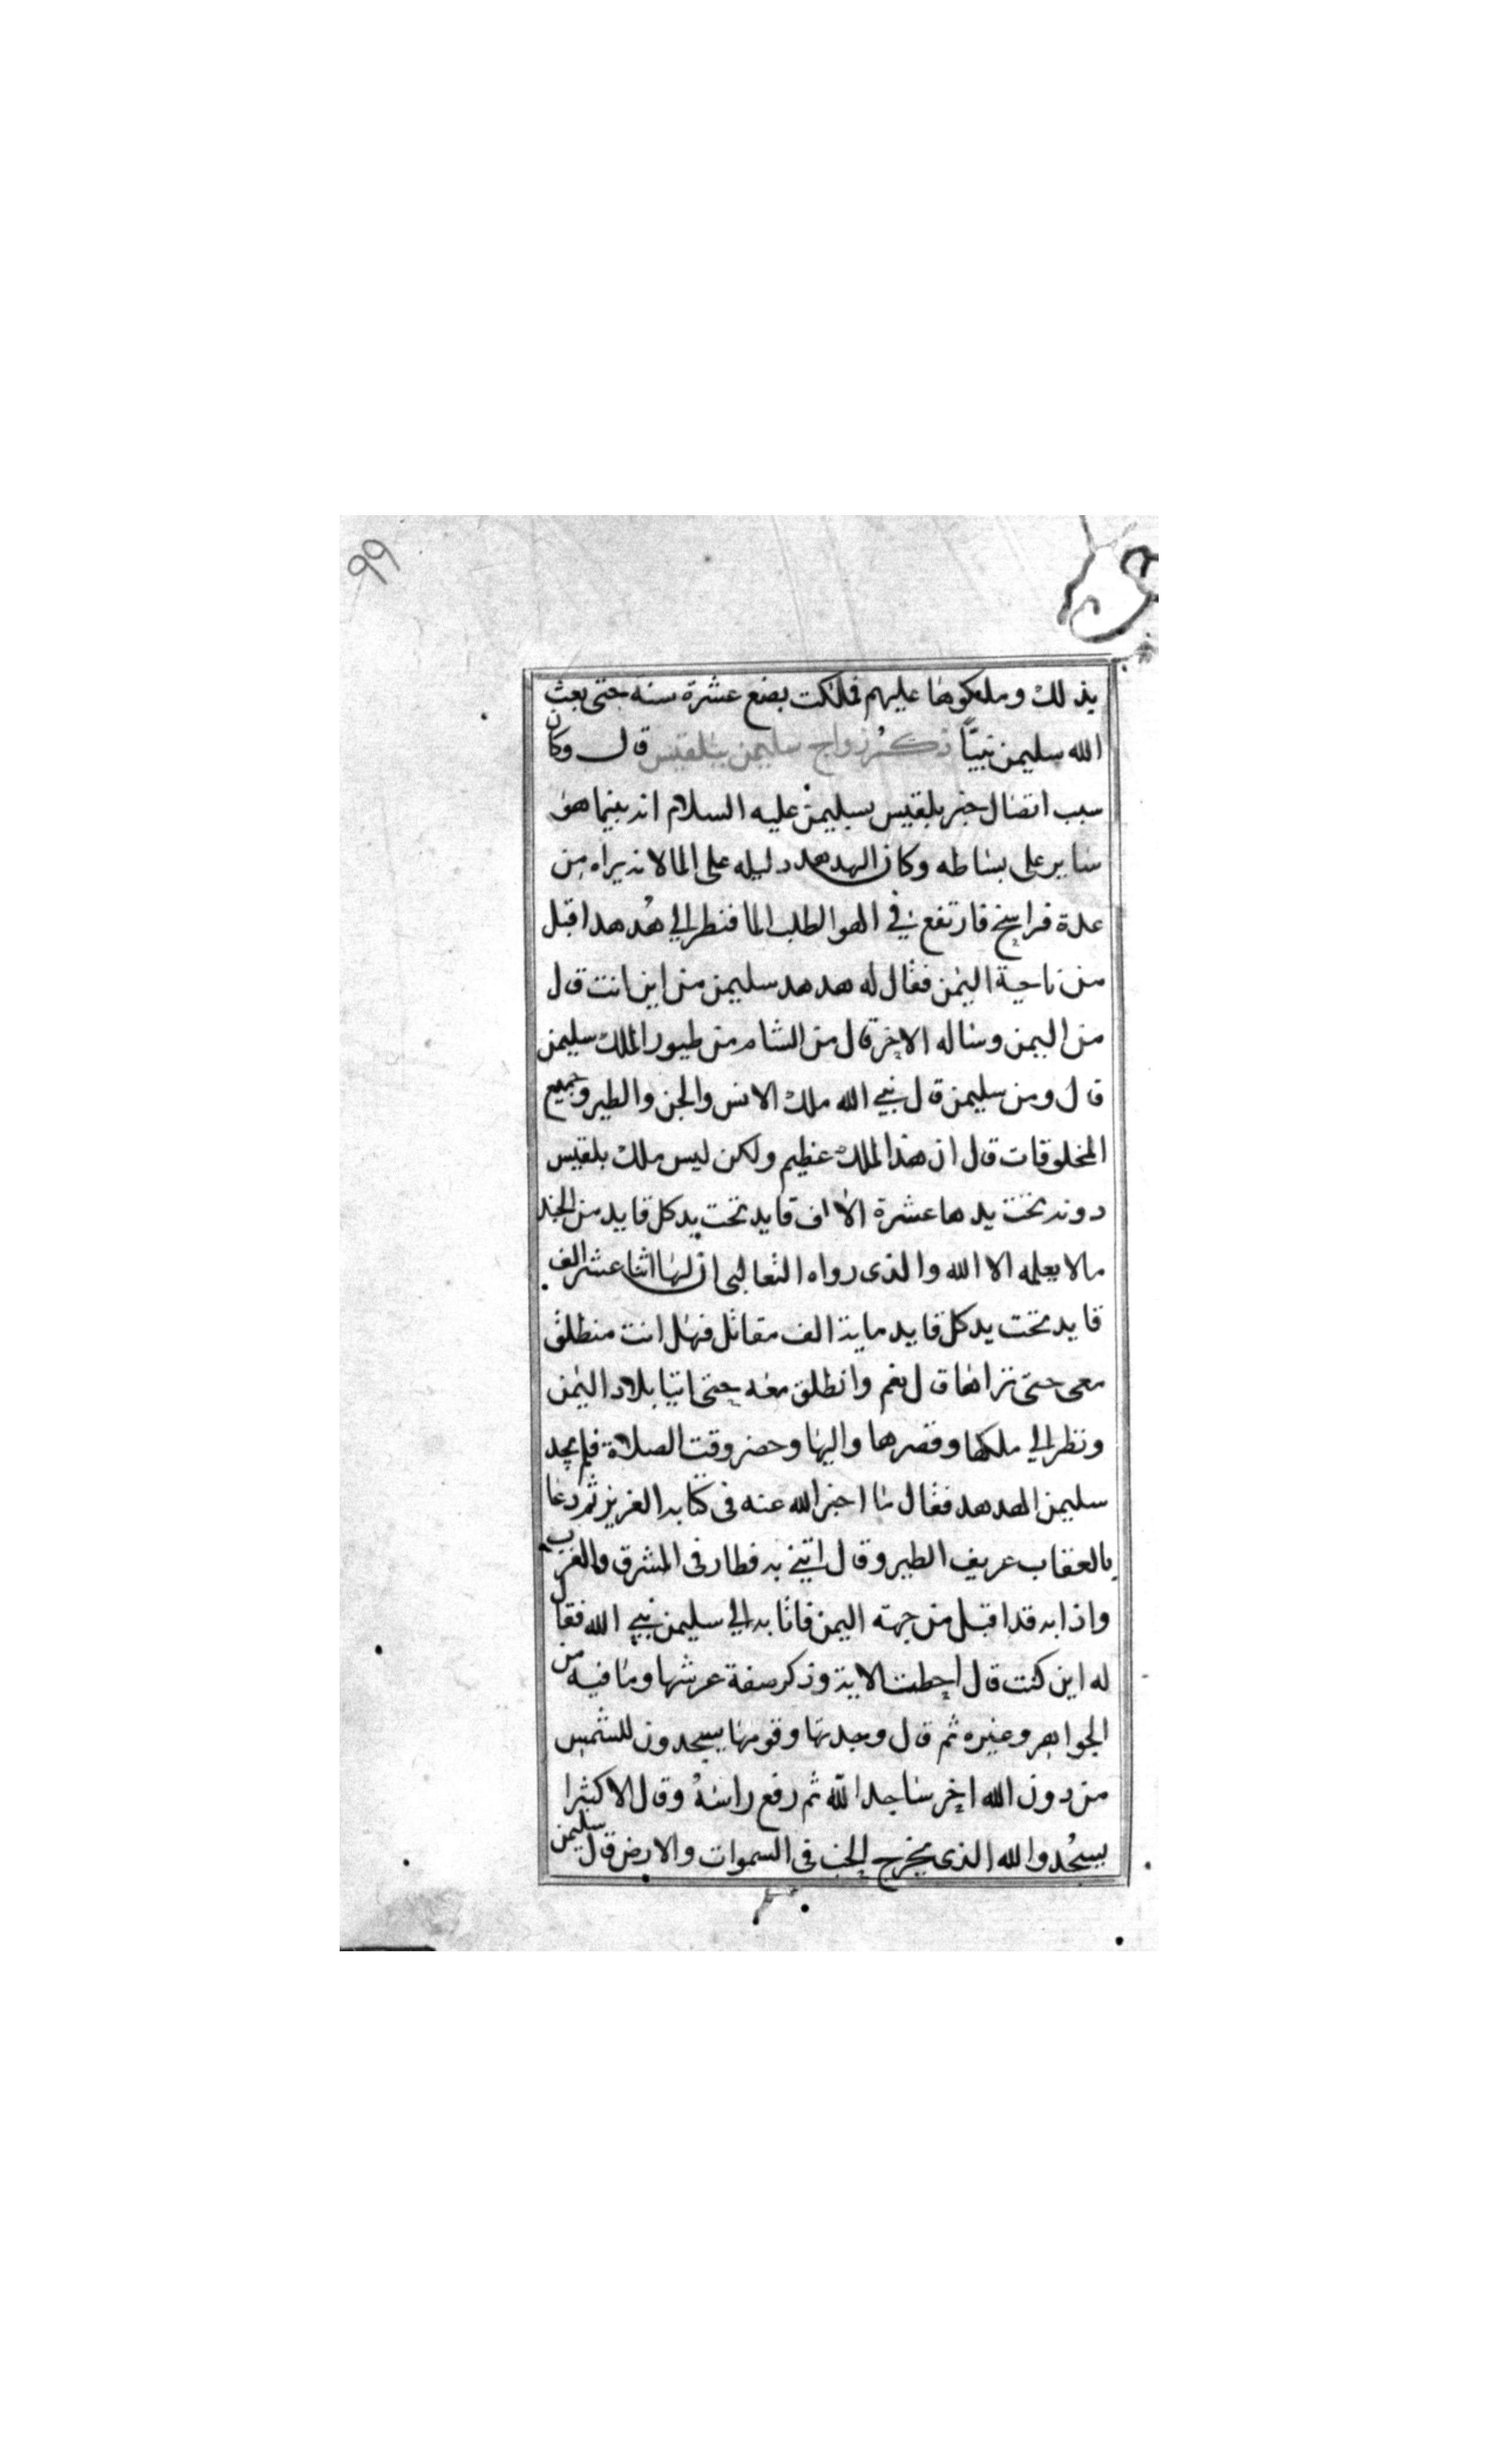 99
بذلك وملكوها عليهم فملكت بضع عشرة سنة حتى بعث
الله سليمن نبيًّا ذكر زواج سليمن ببلقيس قال وكان
سبب اتصال خبر بلقيس بسليمن عليه السلام انه بينما هو
ساير على بساطه وكان الهدهد دليله على الما لانه يراه من
عدة فراسخ فارتفع في الهوا لطلب الما فنظر الي هُدهد اقبل
من ناحية اليمن فقال له هدهد سليمن من اين انت قال
من اليمن وساله الاخر قال من الشام من طيور الملك سليمن
قال ومن سليمن قال نبي الله ملك الانس والجن والطير وجميع
المخلوقات قال ان هذا لملك عظيم ولكن ليس ملك بلقيس
دونه تحت يدها عشرة الااف قايد تحت يد كل قايد من الجند
مالا يعلمه الا الله والذى رواه الثعالبى ان لها اثنا عشر الف
قايد تحت يد كل قايد ماية الف مقاتل فهل انت منطلق
معى حتى تراها قال نعم وانطلق معه حتى اتيا بلاد اليمن
ونظر الي ملكها وقصرها واليها وحضر وقت الصلاة فلم يجد
سليمن الهدهد فقال ما اخبر الله عنه فى كتابه العزيز ثم دعا
بالعقاب عريف الطير وقال اتيني به فطار فى المشرق والغرب
واذا به قد اقبل من جهة اليمن فاتا به الي سليمن نبي الله فقال
له اين كنت قال احطت الاية وذكر صفة عرشها وما فيه من
الجواهر وغيره ثم قال وجدتها وقومها يسجدون للشمس
من دون الله اخر ساجدا لله ثم رفع راسهُ وقال الا كثيرا
يسجُدوا لله الذى يخرج الخب فى السموات والارض قال سليمن